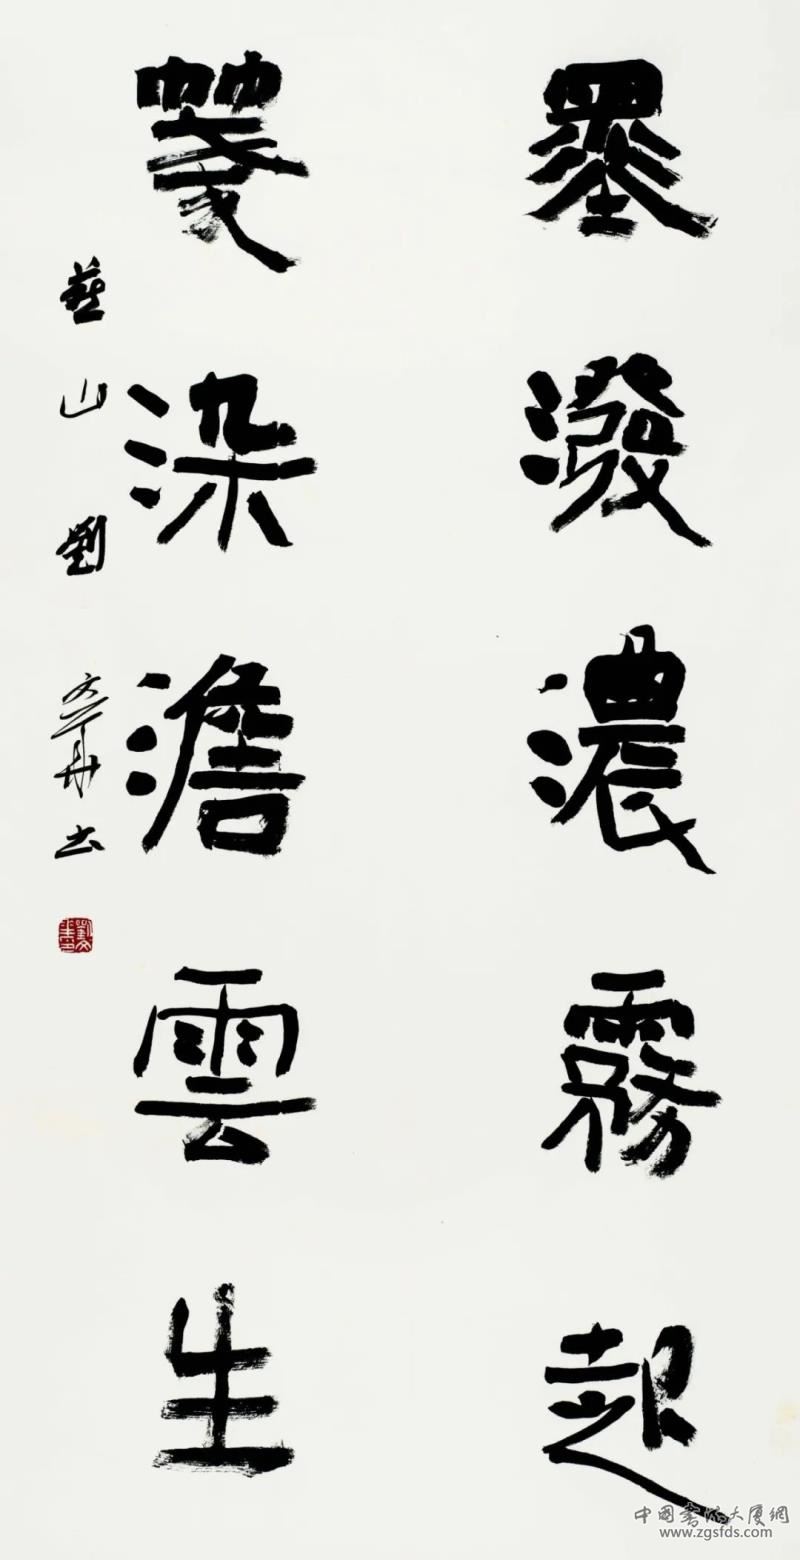 墨潑濃霧起
箋染澹雲生
燕山劉文華书
中國書法大厦網
www.zgsfds.com